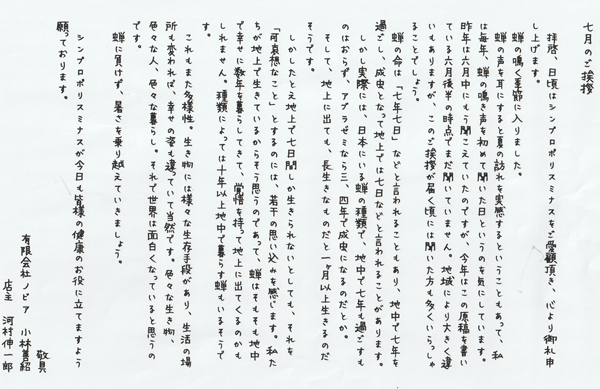 七月のご挨拶
拝啓、日頃はシンプロポリスミナスをご愛顧頂き、心より御礼申
し上げます。
蝉の鳴く季節に入りました。
蝉の声を耳にすると夏の訪れを実感するということもあって、私
は毎年、蝉の鳴き声を初めて聞いた日というのを気にしています。
昨年は六月中にもう聞こえていたのですが、今年はこの原稿を書い
ている六月後半の時点でまだ聞いていません。地域により大きく違
いもありますが、このご挨拶が届く頃には聞いた方も多くいらっしゃ
ることでしょう。
蝉の命は「七年七日」などと言われることもあり、地中で七年を
過ごし、成虫となって地上では七日などと言われることがあります。
しかし実際には、日本にいる蝉の種類で、地中で七年も過ごすも
のはおらず、アブラゼミなら三、四年で成虫になるのだとか。
そして、地上に出ても、長生きなものだと一ヶ月以上生きるのだ
そうです。
しかしたとえ地上で七日間しか生きられないとしても、それを
「可哀想なこと」とするのには、若干の思い込みを感じます。私た
ちが地上で生きているからそう思うのであって、蝉はそもそも地中
で幸せに数年を暮らしてきて、覚悟を持って地上に出てくるのかも
しれません。種類によっては十年以上地中で暮らす蝉もいるそうで
す。
これもまた多様性。生き物には様々な生存手段があり、生活の場
所も変われば、幸せの姿も違っていて当然です。色々な生き物、
色々な人、色々な暮らし。それで世界は面白くなっていると思うの
です。
蝉に負けず、暑さを乗り越えていきましょう。
シンプロポリスミナスが今日も皆様の健康のお役に立てますよう
願っております。
敬具
有限会社ノビア 小林善紹
店主 河村伸一郎